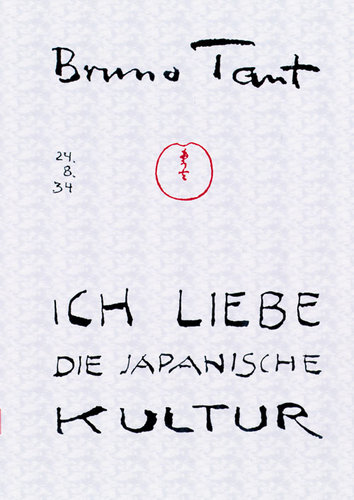 Bruno Taut
24.
8.
34
ICH LIEBE
DIE JAPANISCHE
KULTUR